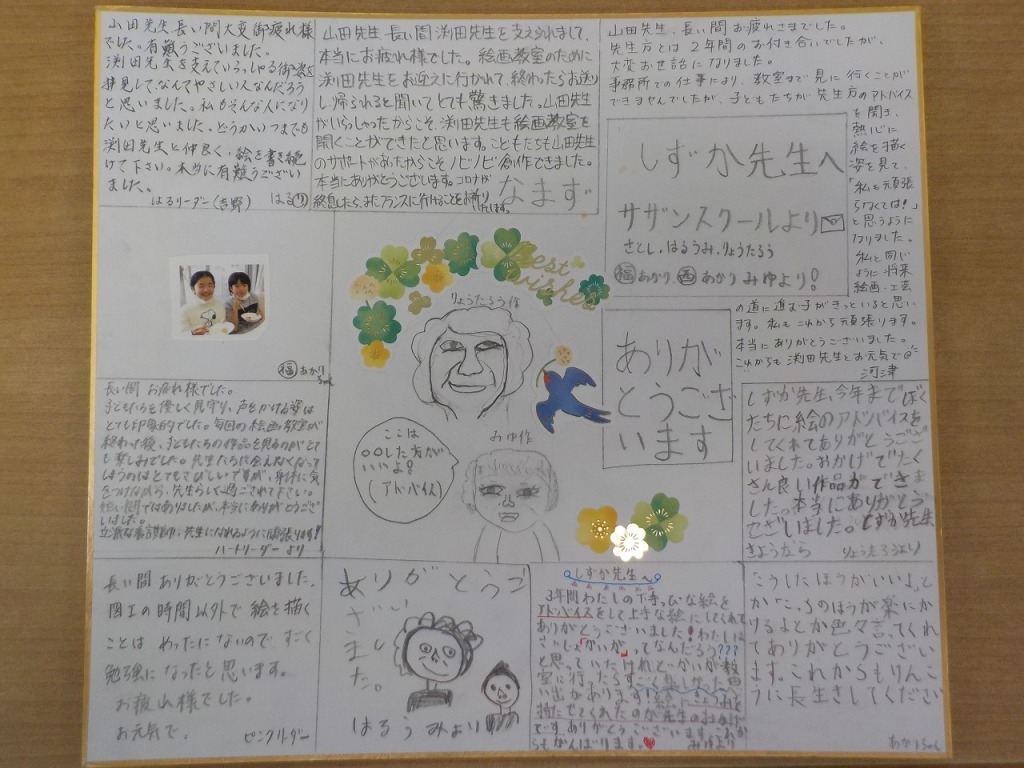 山田先生長い間大変御疲れ様
でした。有難うございました。
渕田先生を支えていらっしゃる御姿を
拝見してなんてやさしい人なんだろう
と思いました。私もそんな人になり
たいと思いました。どうかいつまでも
渕田先生と仲良く、絵を書き続
けて下さい。本当に有難うござい
ました。
はるリーダー
山田先生 長い間 渕田先生を支えられまして、
本当にお疲れ様でした。絵画教室のために
渕田先生をお迎えに行かれて、終わったらお送り
し帰られると聞いてとても驚きました。山田先生
がいらっしゃったからこそ、渕田先生も絵画教室を
開くことができたと思います。こどもたちも山田先生
のサポートがあったからこそ ノビノビ創作できました。
本当にありがとうございます。コロナが
終息したら、またフランスに行けることを祈り
なまず
山田先生、長い間お疲れさまでした。
先生方とは2年間のお付き合いでしたが、
大変お世話になりました。
事務所での仕事により、教室まで見に行くことが
できませんでしたが、子どもたちが先生方のアドバイス
を聞き、
熱心に
絵を描く
姿を見て、
「私も頑張
らなくては!」
と思うように
なりました。
私と同じ
ように将来
絵画・工芸
の道に進む子がきっといると思い
ます。私もこれから頑張ります。
本当にありがとうございました。
これからも渕田先生とお元気で
河津
しずか先生へ
サザンスクールより
さとし、はるうみ、りょうたろう
福あかり、西あかり みゆより!
福あかり
ちゃん
Best
wishes
りょうたろう作
ありが
とうござ
います
ここは
〇〇した方が
いいよ!
(アドバイス)
みゆ作
長い間 お疲れ様でした。
子どもたちを優しく見守り、声をかける姿は
とても印象的でした。毎回の絵画教室が
終わった後、子どもたちの作品を見るのがとて
も楽しみでした。先生たちに会えなくなって
しまうのはとてもさびしいですが、身体に気
をつけながら、先生らしく過ごされて下さい。
短い間ではありましたが、本当にありがとうござ
いました。
ハートリーダーより
しずか先生、今年までぼく
たちに絵のアドバイスを
してくれてありがとうござ
いました。おかげでたく
さん良い作品ができま
した。本当にありがとう
ございました。しずか先生
さようなら りょうたろうより
長い間ありがとうございました。
図工の時間以外で絵を描く
ことは めったにないので、すごく
勉強になったと思います。
お疲れ様でした。
お元気で。
ピンクリーダー
ありがとうご
ざい
ました。
はるうみより
しずか先生へ
3年間わたしの下手っぴな絵を
アドバイスをして上手な絵にしてくれて
ありがとうございました!わたしは
さいしょ「かいが」ってなんだろう???
と思っていたけれど、かいが教室
に行ったら
い出があります。
持たせてくれたのが先生のおかげ
です。ありがとうございます。これか
らもがんばります。
みゆより
こうしたほうがいいよ。と
か「こっちのほうが楽にか
けるよとか色々言ってくれ
てありがとうござい
ます。これからもけんこ
うに長生きしてください
あかりちゃん